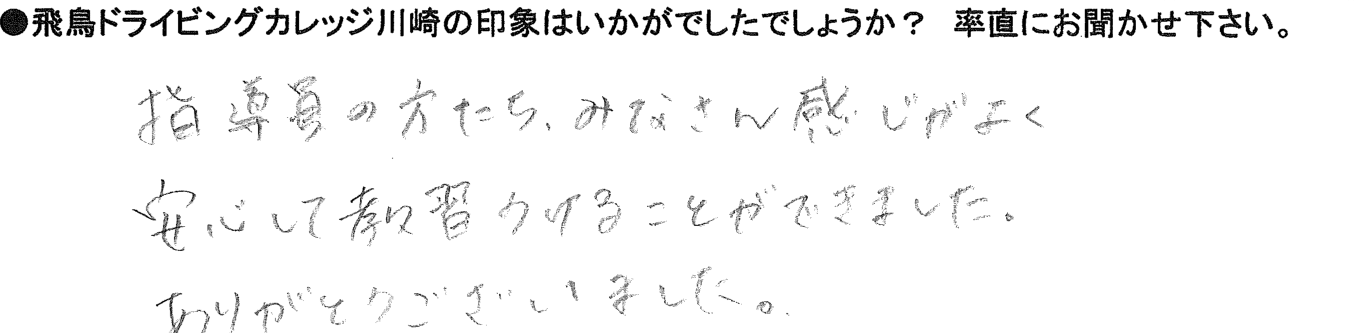 ●飛鳥ドライビングカレッジ川崎の印象はいかがでしたでしょうか？　率直にお聞かせ下さい。
指導員の方たち、みなさん感じがよく
安心して教習うけることができました。
ありがとうございました。